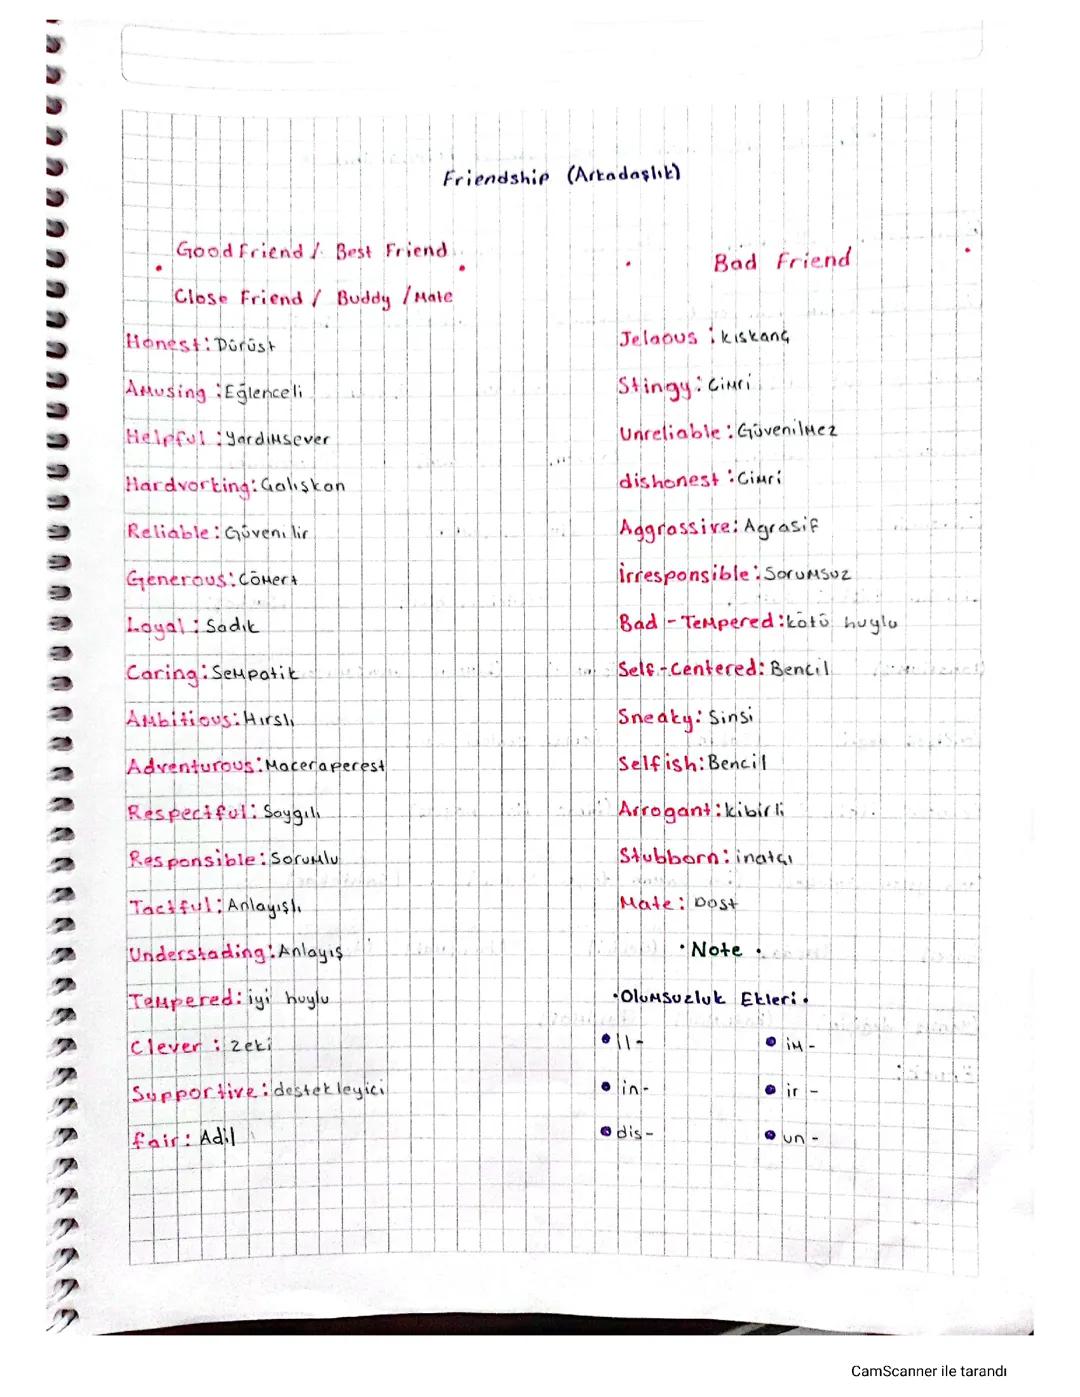 Friendship (Arkadaşlık)
Good Friend / Best Friend
Close Friend / Buddy / Mate
Honest: Dürüst
Amusing: Eğlenceli
Helpful: yardımsever
Hardvorking: Çalışkan
Reliable: Güvenilir
Generous: Cömert
Loyal: Sadık
Caring: Sempatik
Ambitious: Hırslı
Adventurous: Maceraperest
Respectful: Saygılı
Responsible: Sorumlu
Tactful: Anlayışlı
Understading: Anlayış
Tempered: iyi huylu
Clever: Zeki
Supportive: destekleyici
fair: Adil
Bad Friend
Jelaous: kıskanç
Stingy: Cimri
Unreliable: Güvenilmez
dishonest: Cimri
Aggrassive: Agrasif
İrresponsible: Sorumsuz
Bad-Tempered: kötü huylu
Self-Centered: Bencil
Sneaky: Sinsi
Selfish: Bencil
Arrogant: kibirli
Stubborn: inatçı
Mate: Dost
• Note •
• Olumsuzluk Ekleri •
• Il- • im-
• in- • ir-
• dis- • un-
CamScanner ile tarandı